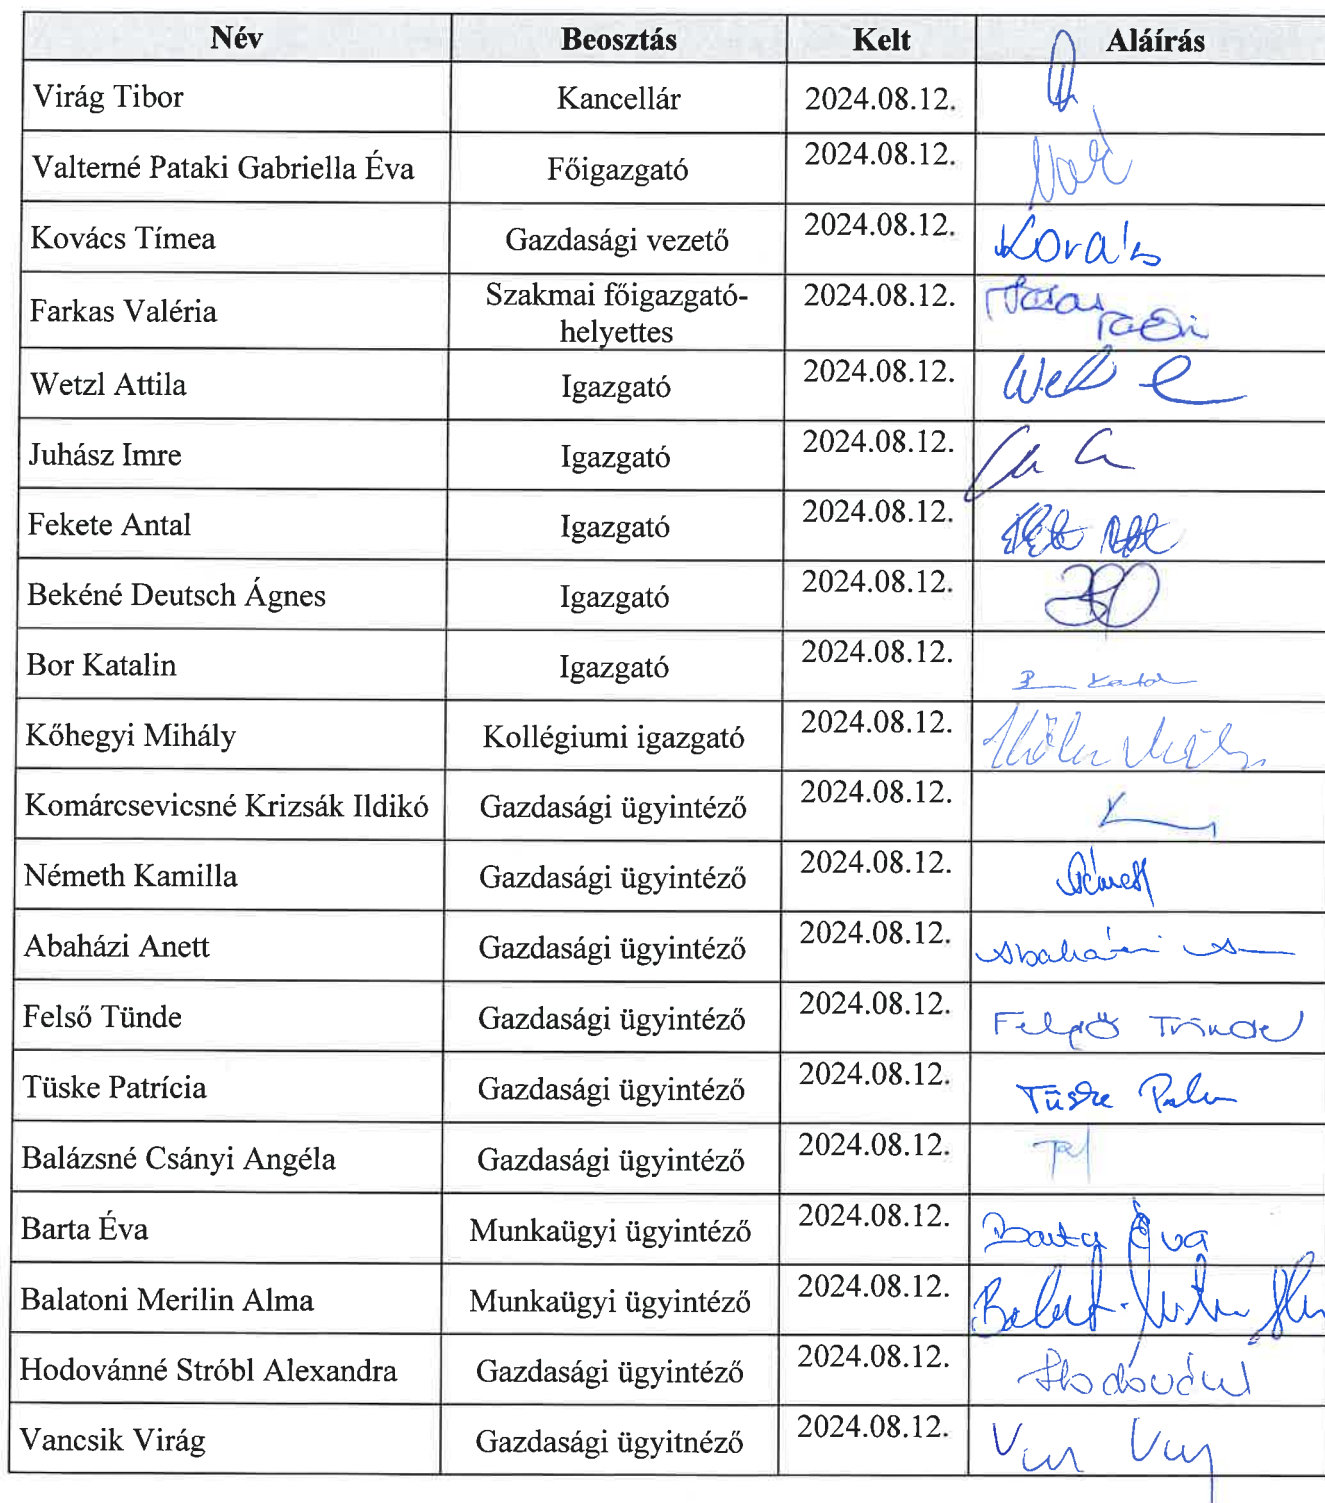 Név Beosztás Kelt Aláírás
Virág Tibor Kancellár 2024.08.12.
Valterné Pataki Gabriella Éva Főigazgató 2024.08.12.
Kovács Tímea Gazdasági vezető 2024.08.12. Kovács
Farkas Valéria Szakmai főigazgató-
helyettes 2024.08.12.
Wetzl Attila Igazgató 2024.08.12.
Juhász Imre Igazgató 2024.08.12.
Fekete Antal Igazgató 2024.08.12.
Bekéné Deutsch Ágnes Igazgató 2024.08.12.
Bor Katalin Igazgató 2024.08.12.
Kőhegyi Mihály Kollégiumi igazgató 2024.08.12.
Komárcsevicsné Krizsák Ildikó Gazdasági ügyintéző 2024.08.12.
Németh Kamilla Gazdasági ügyintéző 2024.08.12. Németh
Abaházi Anett Gazdasági ügyintéző 2024.08.12. Abaházi
Felső Tünde Gazdasági ügyintéző 2024.08.12. Felső Tünde
Tüske Patrícia Gazdasági ügyintéző 2024.08.12. Tüske
Balázsné Csányi Angéla Gazdasági ügyintéző 2024.08.12.
Barta Éva Munkaügyi ügyintéző 2024.08.12. Barta Éva
Balatoni Merilin Alma Munkaügyi ügyintéző 2024.08.12.
Hodovánné Stróbl Alexandra Gazdasági ügyintéző 2024.08.12.
Vancsik Virág Gazdasági ügyitnéző 2024.08.12.